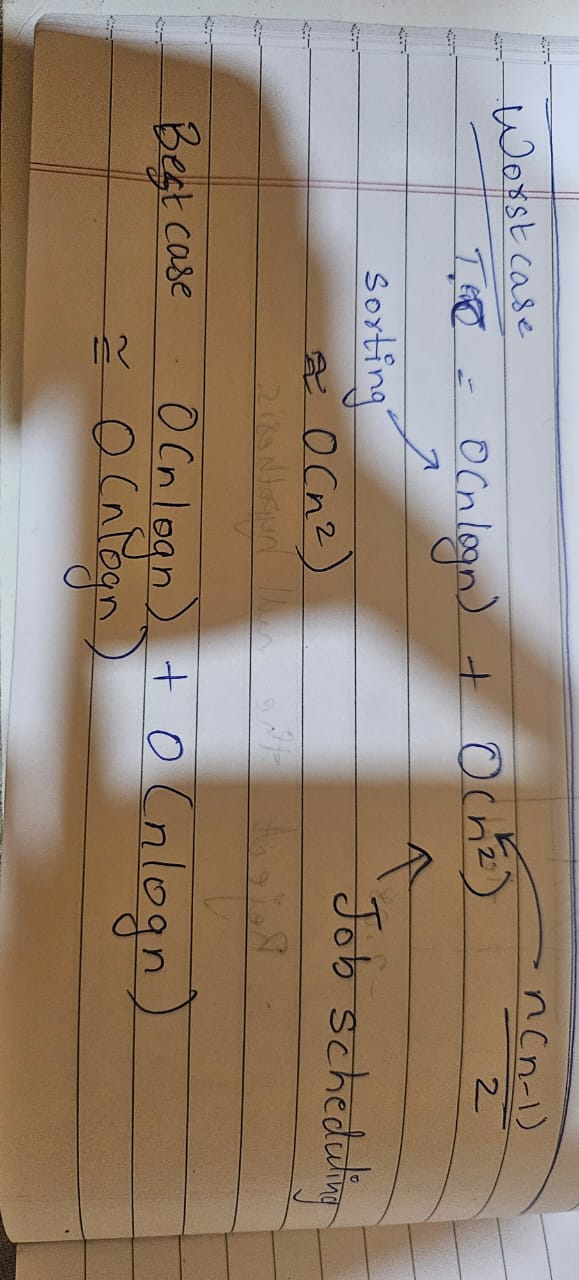 Worst case
n(n-1)
2
T = O(nlogn) + O(n²)
Sorting
Job scheduling
≈ O(n²)
Best case O(nlogn) + O(nlogn)
≅ O(nlogn)